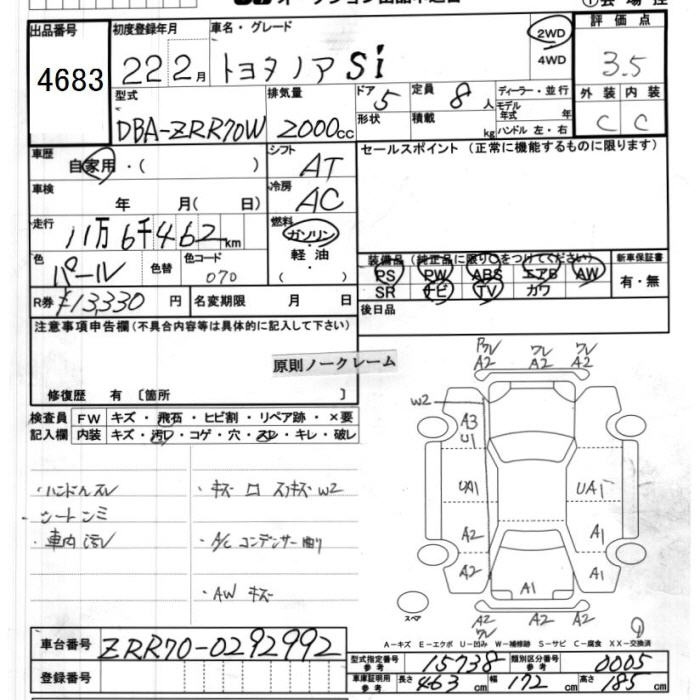 出品番号 初度登録年月 車名・グレード 2WD 評価点
4683 22 2月 トヨタノア Si 4WD 3.5
型式 排気量 ドア 5 定員 8人 ディーラー・並行 外装 内装
DBA-ZRR70W 2000cc 形状 積載 kg モデル年式 年 ハンドル 左・右 C C
車歴 自家用・( ) シフト AT セールスポイント(正常に機能するものに限ります)
車検 年 月( 日) 冷房 AC
走行 11万6千462km 燃料 ガソリン・軽油
装備品(純正品に限り○をつけてください) 新車保証書
色 パール 色替 色コード 070 PS PW ABS エアB AW 有・無
SR ナビ TV カワ
R券 ¥13,330円 名変期限 月 日 後日品
注意事項申告欄(不具合内容等は具体的に記入して下さい)
原則ノークレーム
修復歴 有 〔箇所 〕
検査員 FW キズ・飛石・ヒビ割・リペア跡・×要
記入欄 内装 キズ・汚レ・コゲ・穴・スレ・キレ・破レ
・ハンドルスレ ・キズ
・シートシミ
・車内汚レ ・A/C コンデンサー
・AW キズ
ワレ ワレ
A2 A2 A2
W2
A3
U1
UA1 UA1
A2 A1
A2 A1 A1
スペア A2 A2 A2
ワレ
A-キズ E-エクボ U-凹み W-補修跡 S-サビ C-腐食 XX-交換済
車台番号 ZRR70-0292992
型式指定番号 参考 15738 類別区分番号 参考 0005
登録番号
車庫証明用 参考 長さ 463cm 幅 172cm 高さ 185cm